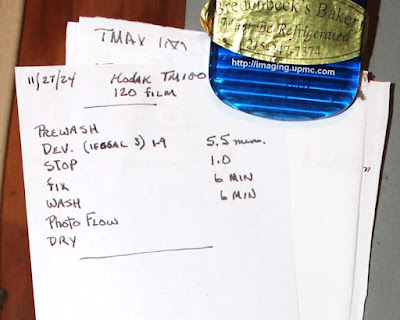 Bredenbeck's Bakery
Must Be Refrigerated
215-247-7374
http://imaging.upmc.com
TMAX
11/27/24 Kodak TM100
120 FILM
PREWASH
DEV. (LEGAL 3) 1-9 5.5 min.
STOP 1.0
FIX 6 MIN
WASH 6 MIN
Photo Flow
DRY